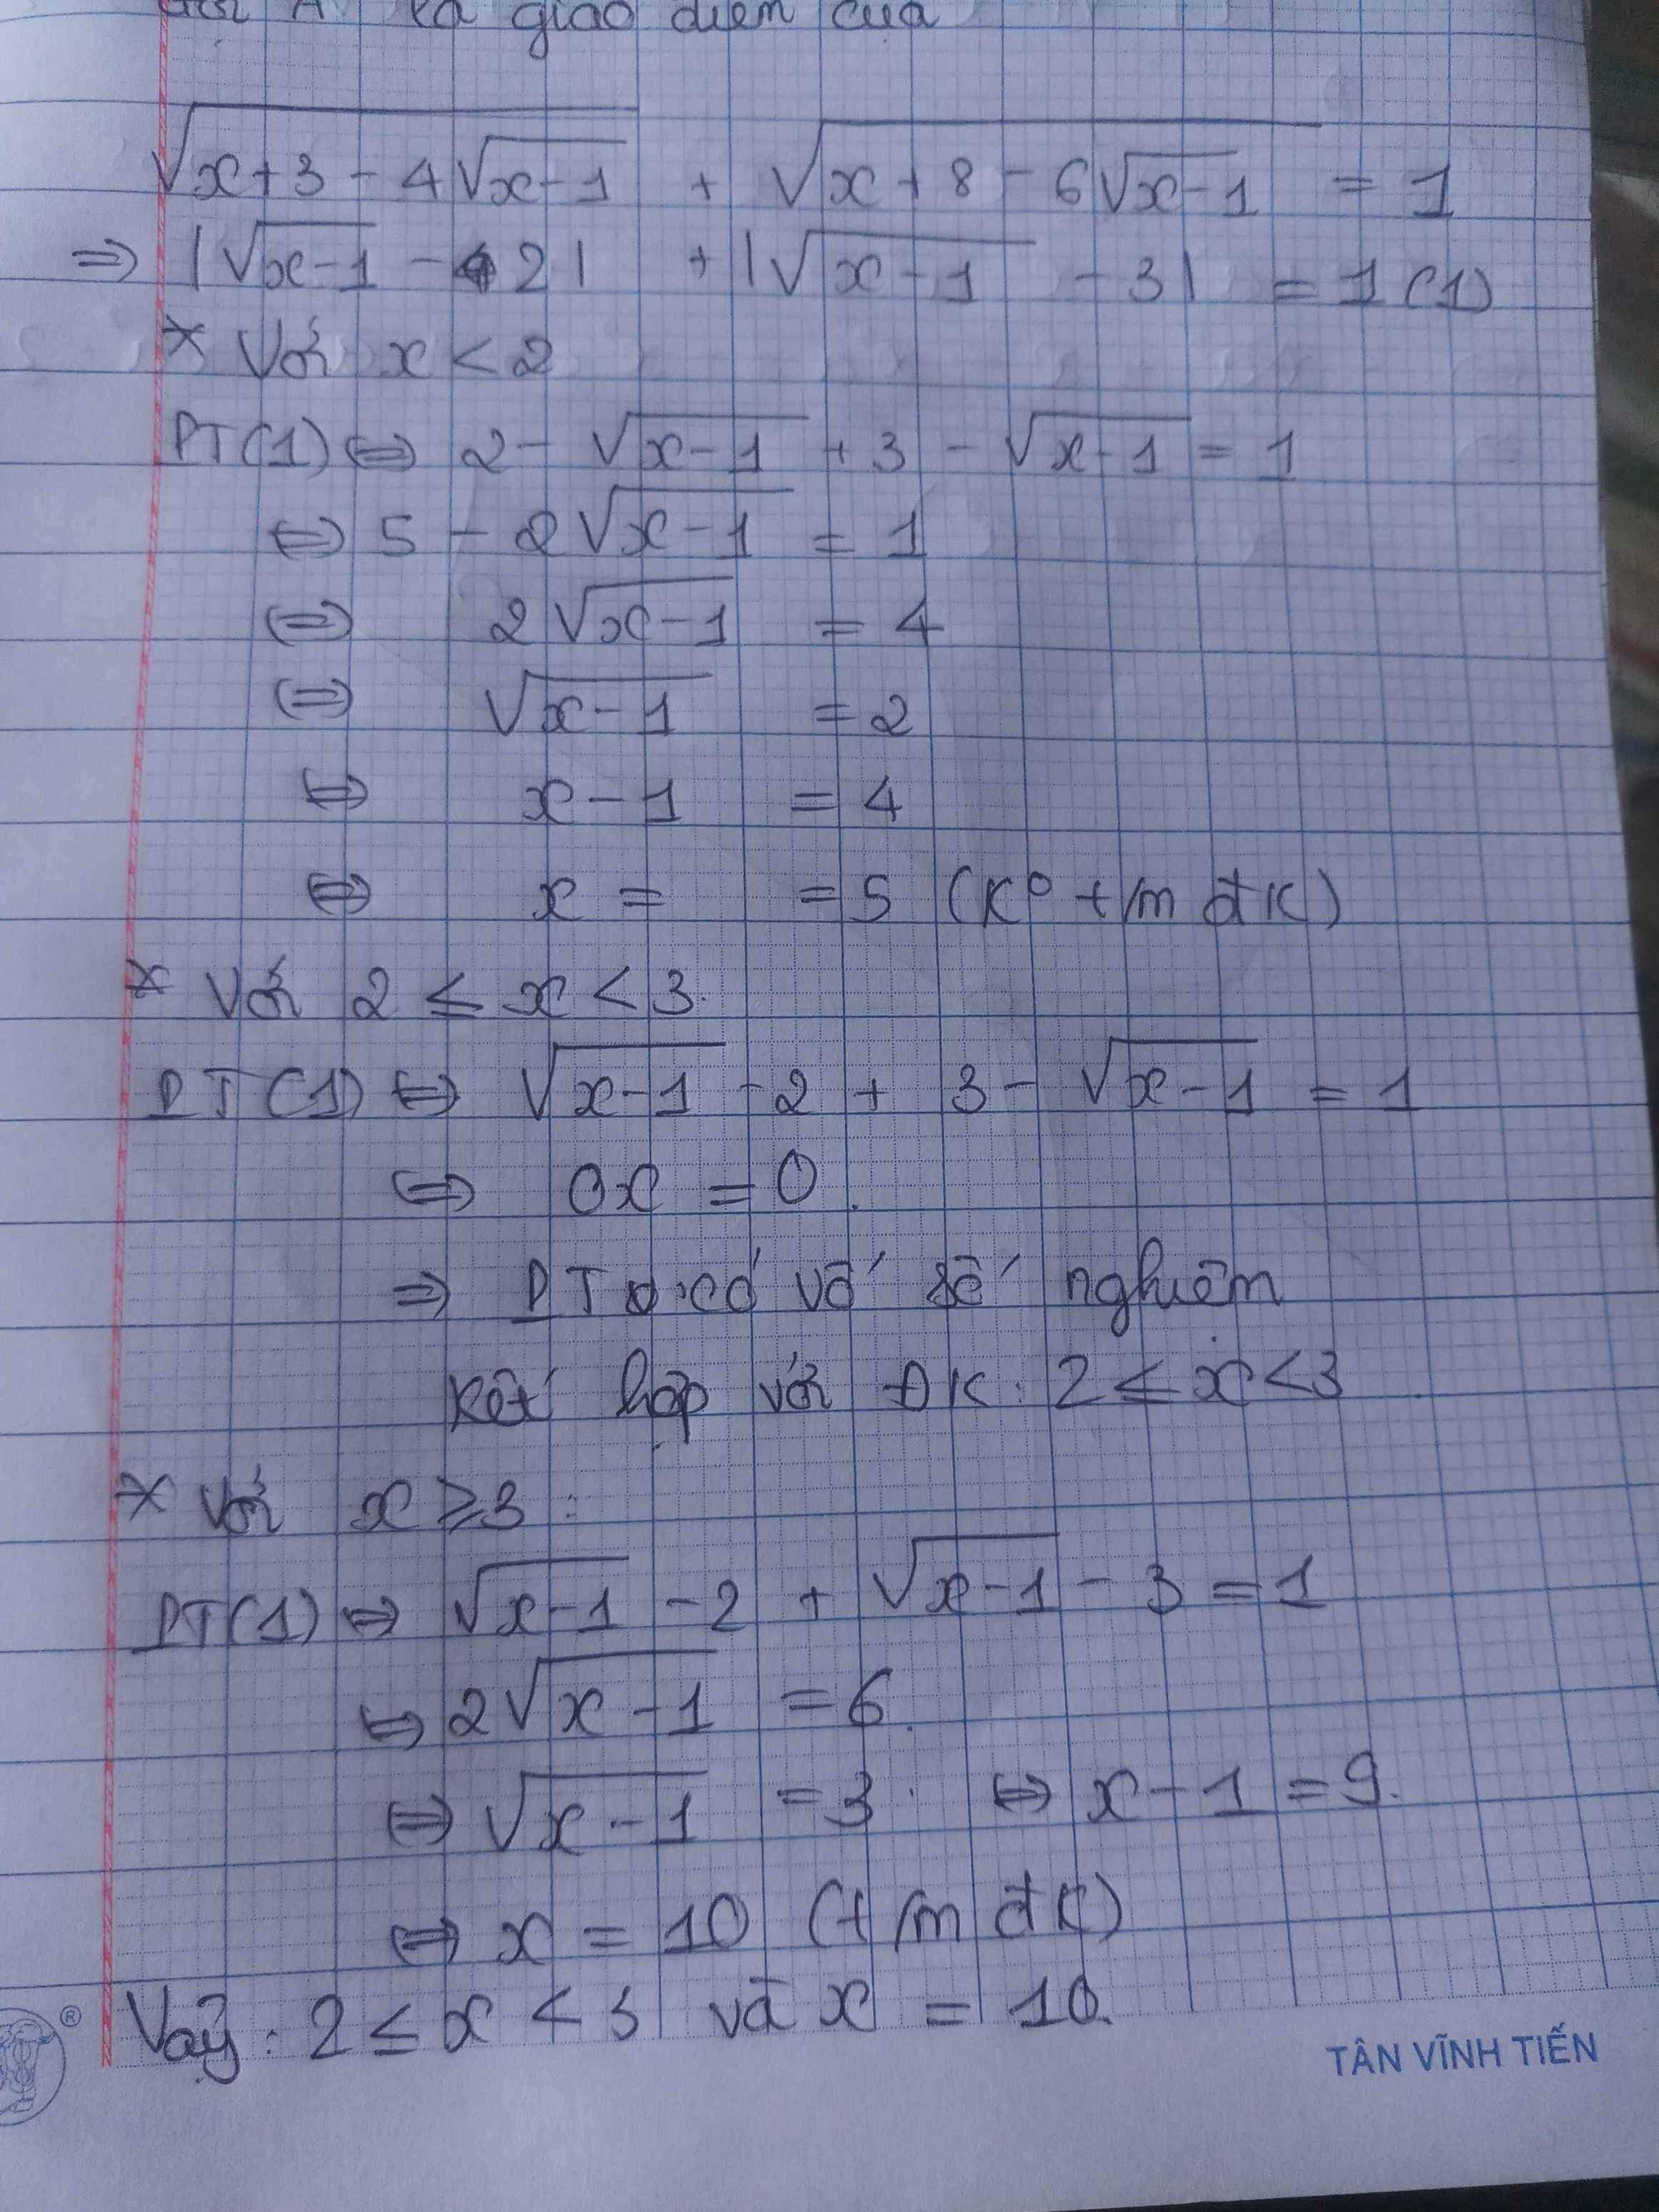 là giao điểm của
√(x+3-4√(x-1)) + √(x+8-6√(x-1)) = 1
⇒ |√(x-1) - 2| + |√(x-1) - 3| = 1 (1)
* Với x < 2
PT(1) ⇔ 2 - √(x-1) + 3 - √(x-1) = 1
⇔ 5 - 2√(x-1) = 1
⇔ 2√(x-1) = 4
⇔ √(x-1) = 2
⇔ x - 1 = 4
⇔ x = = 5 (K° t/m đK)
* Với 2 ≤ x < 3.
PT(1) ⇔ √(x-1) - 2 + 3 - √(x-1) = 1
⇔ 0x = 0.
⇒ PT có vố số nghiệm
Kết hợp với ĐK: 2 ≤ x < 3
* Với x ≥ 3 :
PT(1) ⇔ √(x-1) - 2 + √(x-1) - 3 = 1
⇔ 2√(x-1) = 6.
⇔ √(x-1) = 3. ⇔ x - 1 = 9.
⇔ x = 10 (t/m đK)
Vậy : 2 ≤ x < 3 và x = 10.
®
TÂN VĨNH TIẾN